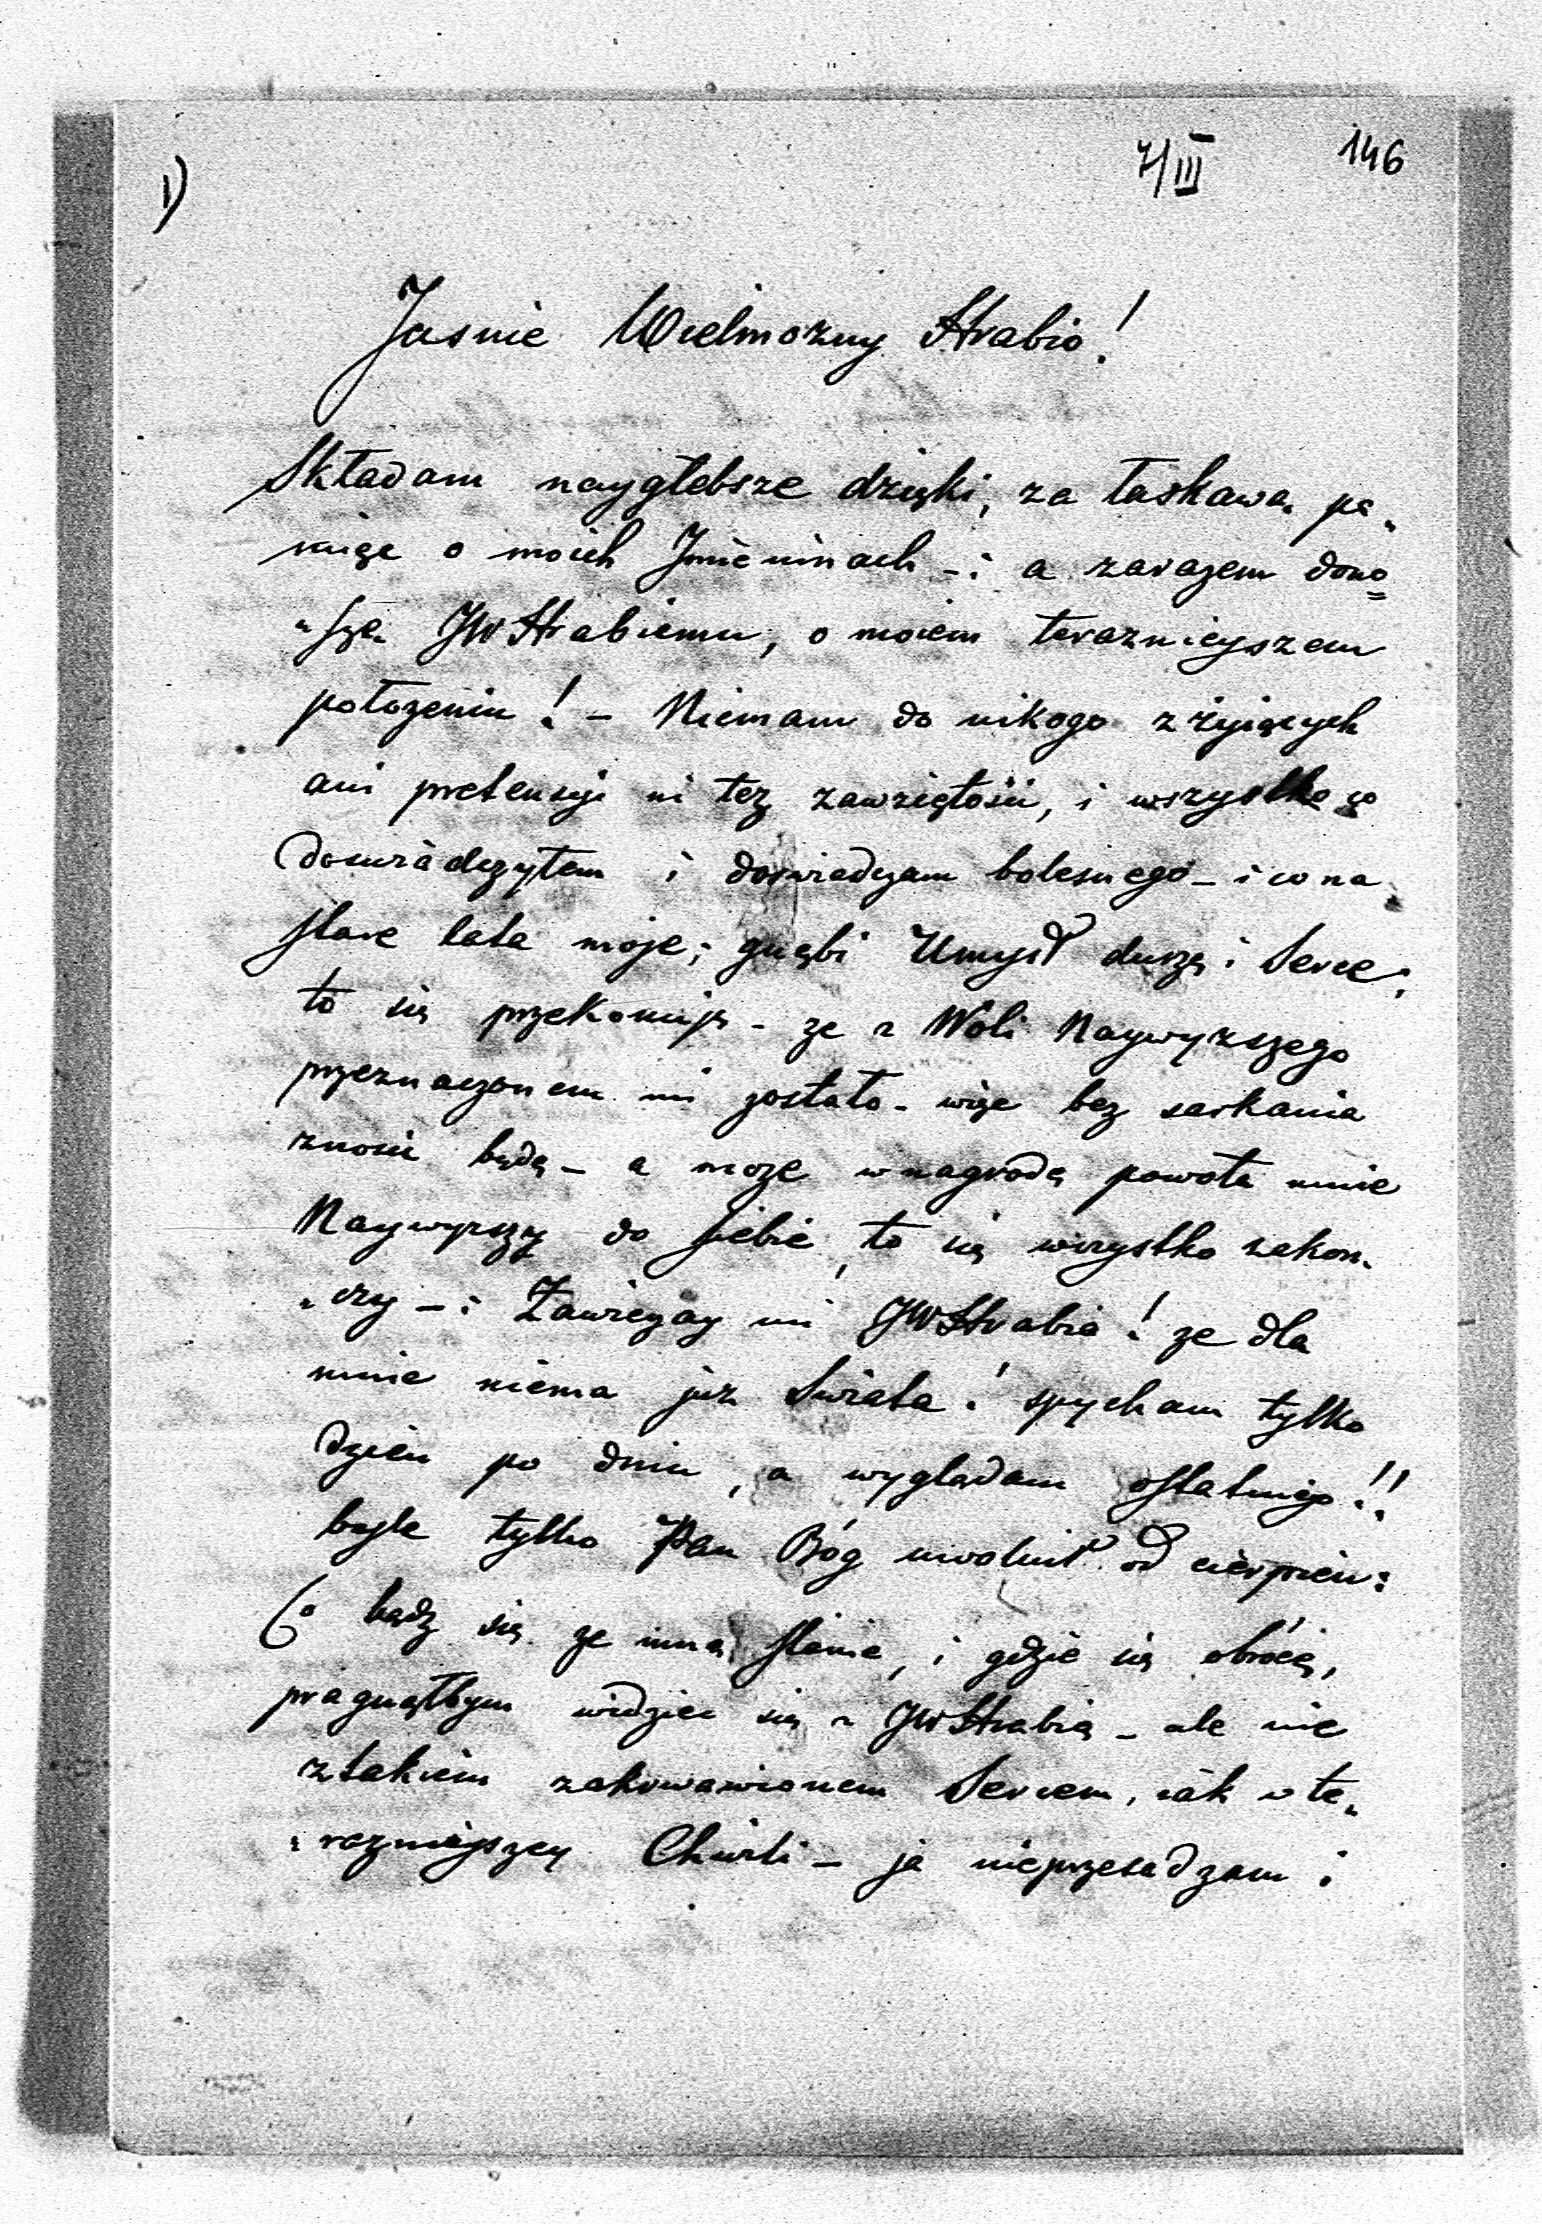 1)
7/III
146
Jasnie Wielmozny Hrabio!
Składam naygłebsze dzięki, za łaskawą pa„
mięc o moich Jmieninach –: a zarazem dono=
„szę JWHrabiemu, o moiem teraznieyszem
położeniu! – Niemam do nikogo z żyiących
ani pretensyi ni tez zawziętości, i wszystko co
doswiadczyłem i doswiadczam bolesnego – i co na
stare lata moje; gnębi Umysł duszę i Serce;
to się przekonuję – ze z Woli Naywyzszego
przeznaczonem mi zostało – więc bez sarkania
znosic będę – a moze w nagrodę powoła mnie
Naywyzszy do siebie, to się wszystko zakon„
„czy –: Zawierzay mi JWHrabio! ze dla
mnie niema juz Swiata! spycham tylko
dzien po dniu, a wyglądam ostatniego!!
byle tylko Pan Bóg uwolnił od cierpien:
Co bądz się ze mną stanie, i gdzie się obrócę,
pragnąłbym widziec się z JWHrabią – ale nie
z takiem zakrwawionem Sercem, iak w te„
„raznieyszey Chwili – ja nieprzesadzam i